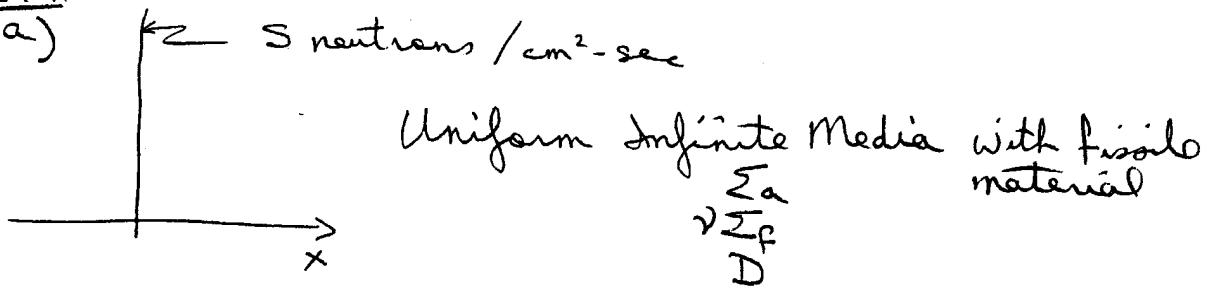 a)
S neutrons / cm²-sec
Uniform Infinite Media with fissile
material
Σa
νΣf
D
x